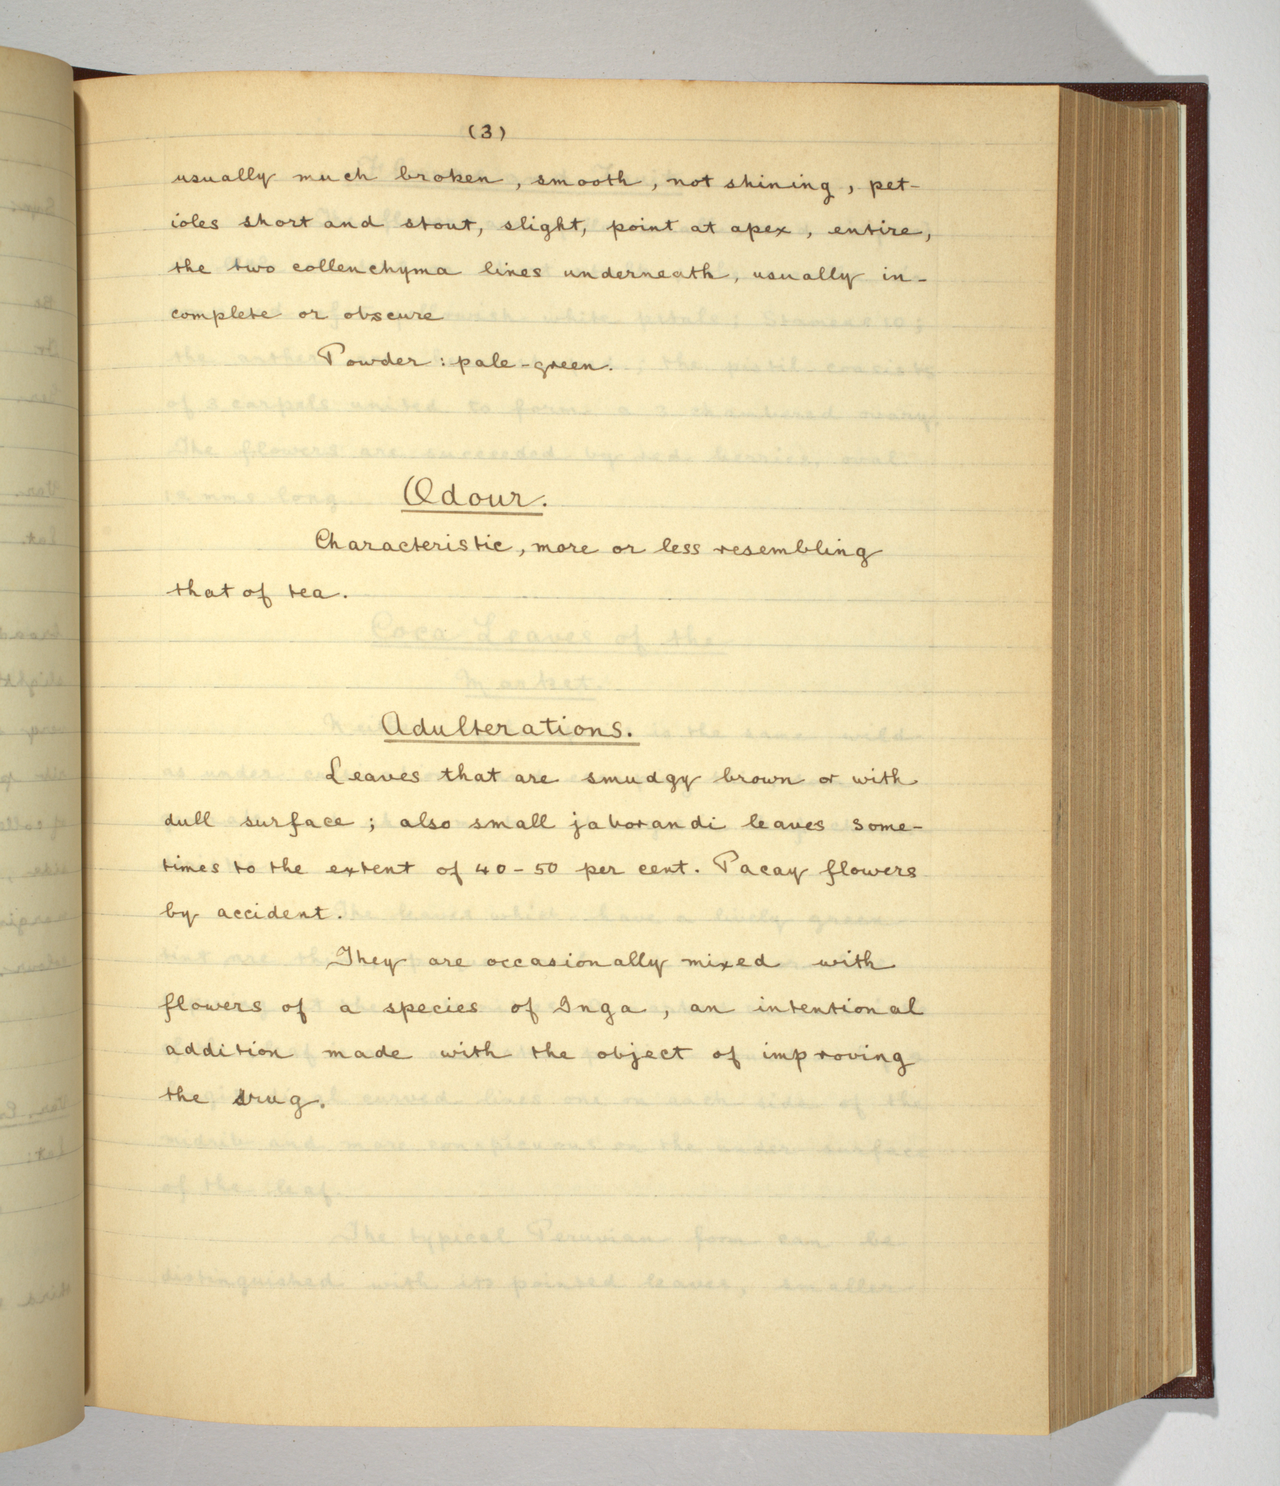 (3)
usually much broken, smooth, not shining, pet-
ioles short and stout, slight, point at apex, entire,
the two collenchyma lines underneath, usually in-
complete or obscure
Powder: pale-green.
Odour.
Characteristic, more or less resembling
that of tea.
Adulterations.
Leaves that are smudgy brown or with
dull surface; also small jaborandi leaves some-
times to the extent of 40-50 per cent. Pacay flowers
by accident.
They are occasionally mixed with
flowers of a species of Inga, an intentional
addition made with the object of improving
the drug.